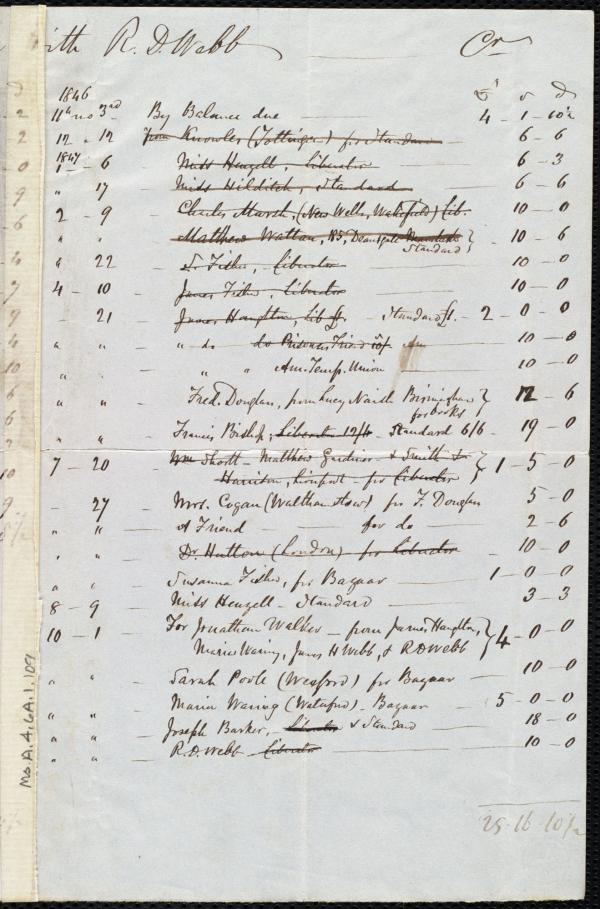 ith R. D. Webb Cr
£ s d
1846
11th mo 3rd By Balance due 4 - 1 - 10½
12 - 12 from Knowles (Tottington) for Standard 6 - 6
1847
1 - 6 Miss Heugell, Liberator 6 - 3
" 17 Miss Hilditch, Standard 6 - 6
2 - 9 Charles Marsh, (New Wells, Wakefield) Lib. 10 - 0
" " Matthew Watton, 185, Deansgate Manchester } 10 - 6
Standard
" 22 S. Fisher, Liberator 10 - 0
4 - 10 James Fisher, Liberator 10 - 0
21 James Haughton, Lib £1. Standard £1. - 2 - 0 - 0
" " " do do Prisoners Friend 10/ 10 - 0
" " " " Am. Temp. Union 10 - 0
" " Fred. Douglass, from Lucy Naish Birmingham } 12 - 6
for books
" " Francis Bishop, Liberator 12/6 - Standard 6/6 - 19 - 0
7 - 20 Wm Shortt - Matthew Gardner & Smith & } 1 - 5 - 0
Harrison, Liverpool - for Liberator
" 27 Mrs. Cogan (Walthamstow) for F. Douglass 5 - 0
" " A Friend for do 2 - 6
" " Dr. Hutton (London) for Liberator 10 - 0
" " Susanna Fisher, for Bazaar 1 - 0 - 0
8 - 9 Miss Heugell - Standard 3 3
10 - 1 For Jonathan Walker - from James Haughton, } 4 - 0 - 0
Maria Waring, James H Webb, & R D Webb
" " Sarah Poole (Wexford) for Bazaar 10 - 0
" " Maria Waring (Waterford) - Bazaar 5 - 0 - 0
" " Joseph Barker, Liberator & Standard 18 - 0
" " R. D. Webb Liberator 10 - 0
25 - 16 - 10½
Ms. A. 4. 6A. 1. 109